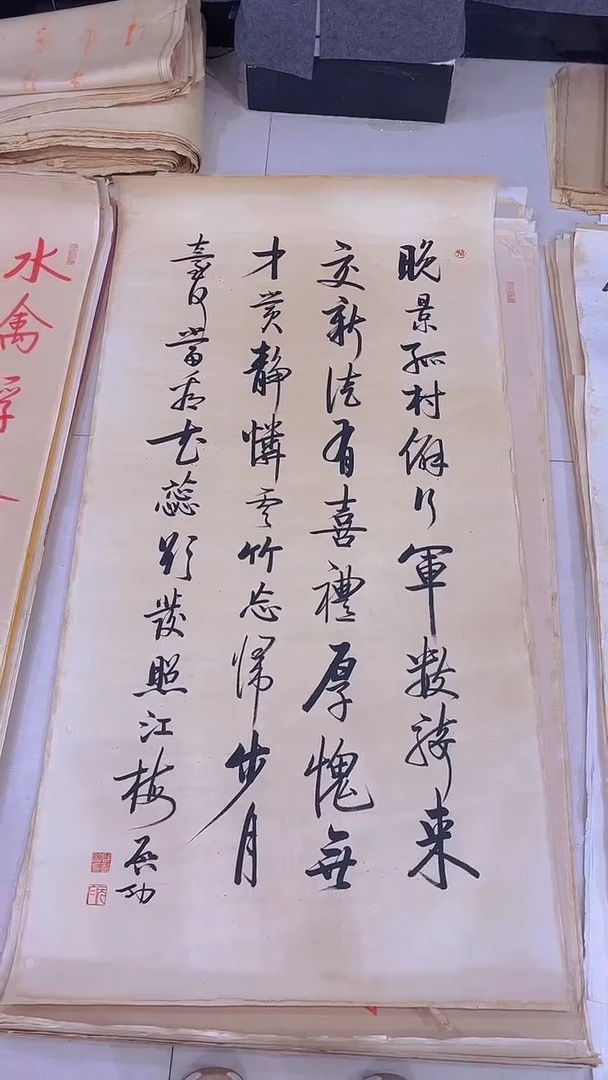 晚景孤村僻行軍數騎來
交新徒有喜禮厚愧無
才賞静憐雲竹忘歸步月
臺何當看花蕊欲發照江梅 启功
水禽浮